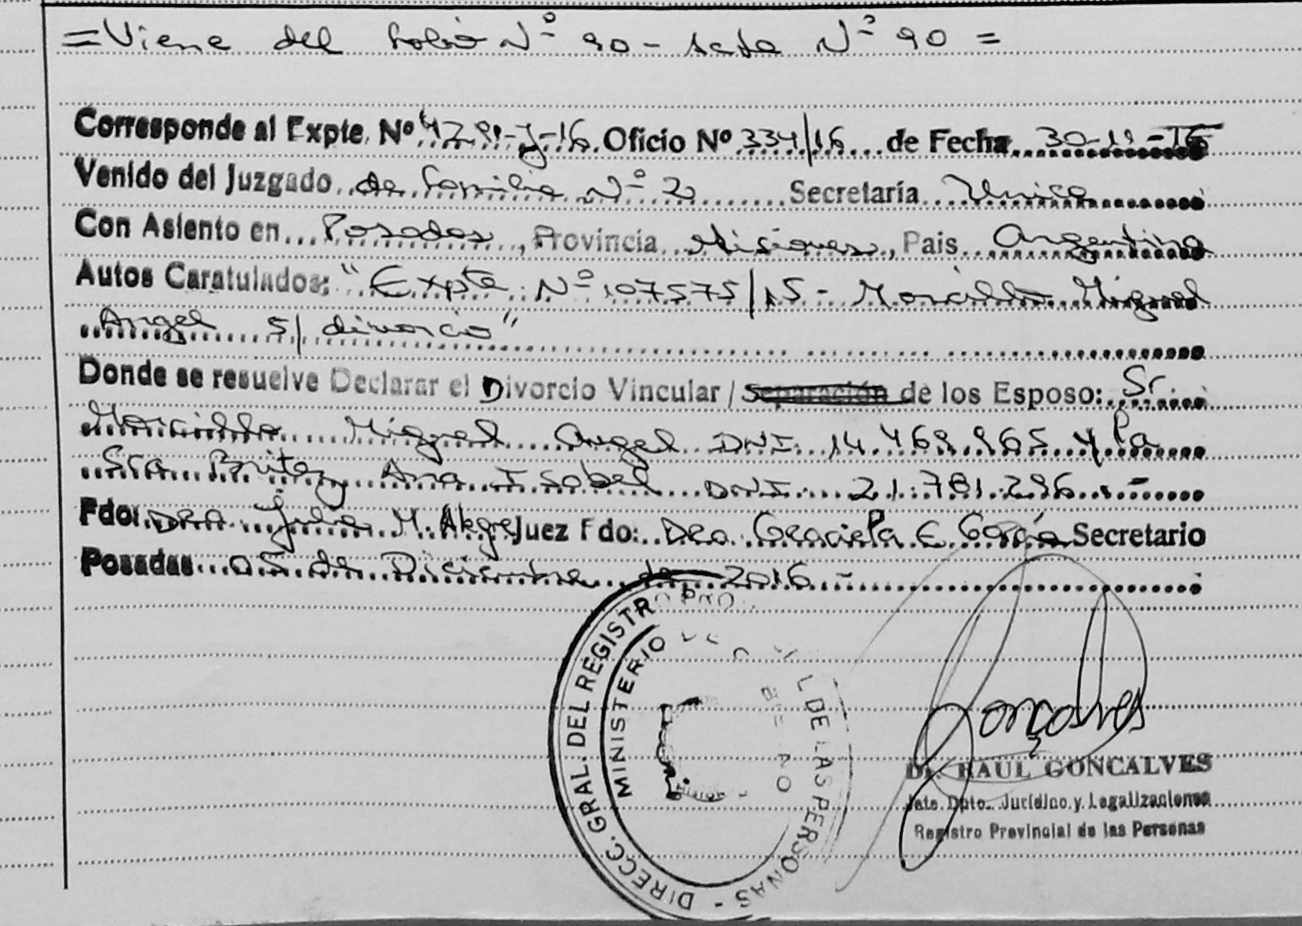 = Viene del folio Nº 90 - Acta Nº 90 =
Corresponde al Expte. Nº 4729-J-16. Oficio Nº 334/16 de Fecha 30-11-16
Venido del Juzgado de Familia Nº 2 Secretaría Unica
Con Asiento en Posadas, Provincia Misiones, Pais Argentina
Autos Caratulados: "Expte Nº 107575/15 - Morcillo Miguel
Angel S/ divorcio"
Donde se resuelve Declarar el Divorcio Vincular / Separación de los Esposo: Sr.
Morcillo Miguel Angel DNI 14.469.965 y la
Sra Britez Ana Isabel DNI 21.781.296.-
Fdo: DRA. Julia M. Alegre Juez Fdo: Dra. Graciela E. García Secretario
Posadas 05 de Diciembre de 2016.-
DIRECC. GRAL. DEL REGISTRO PRO L DE LAS PERSONAS -
MINISTERIO DE G
Gonçalves
Dr. RAUL GONCALVES
Jefe Dpto. Jurídico y Legalizaciones
Registro Provincial de las Personas